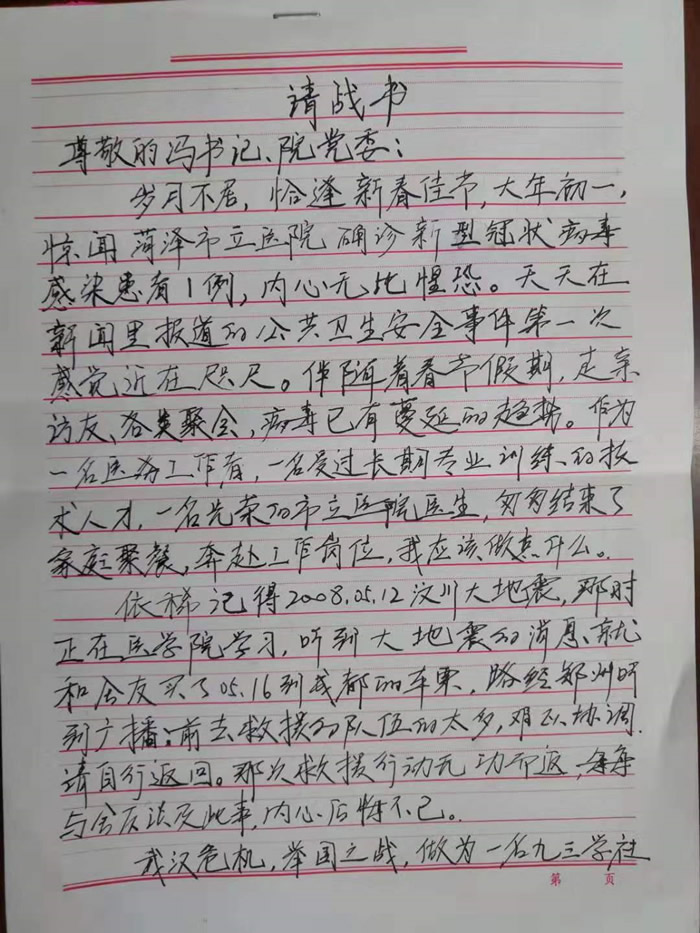 请战书
尊敬的冯书记、院党委：
岁月不居，恰逢新春佳节，大年初一，
惊闻菏泽市立医院确诊新型冠状病毒
感染患者1例，内心无比惶恐。天天在
新闻里报道的公共卫生安全事件第一次
感觉近在咫尺。伴随着春节假期，走亲
访友、各类聚会，病毒已有蔓延的趋势。作为
一名医务工作者，一名受过长期专业训练的技
术人才，一名光荣的市立医院医生，匆匆结束了
家庭聚餐，奔赴工作岗位，我应该做点什么。
依稀记得2008.05.12汶川大地震，那时
正在医学院学习，听到大地震的消息、就
和舍友买了05.16到成都的车票，路经郑州听
到广播：前去救援的队伍的太多，难以协调
请自行返回。那次救援行动无功而返，每每
与舍友谈及此事，内心后悔不已。
武汉危机，举国之战，做为一名九三学社
第 页